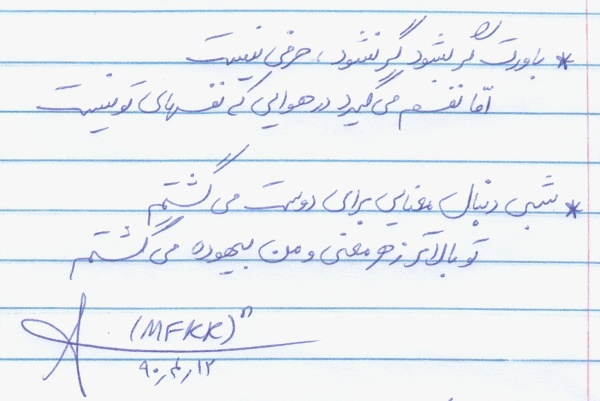 * باورت گر بشود گر نشود، حرفی نیست
امّا نفسم می گیرد در هوایی که نفسهای تو نیست
* شبی دنبال معنایی برای دوست می گشتم
تو بالاتر ز هر معنی و من بیهوده می گشتم
(MFKK)
۹۰٫۴٫۱۲